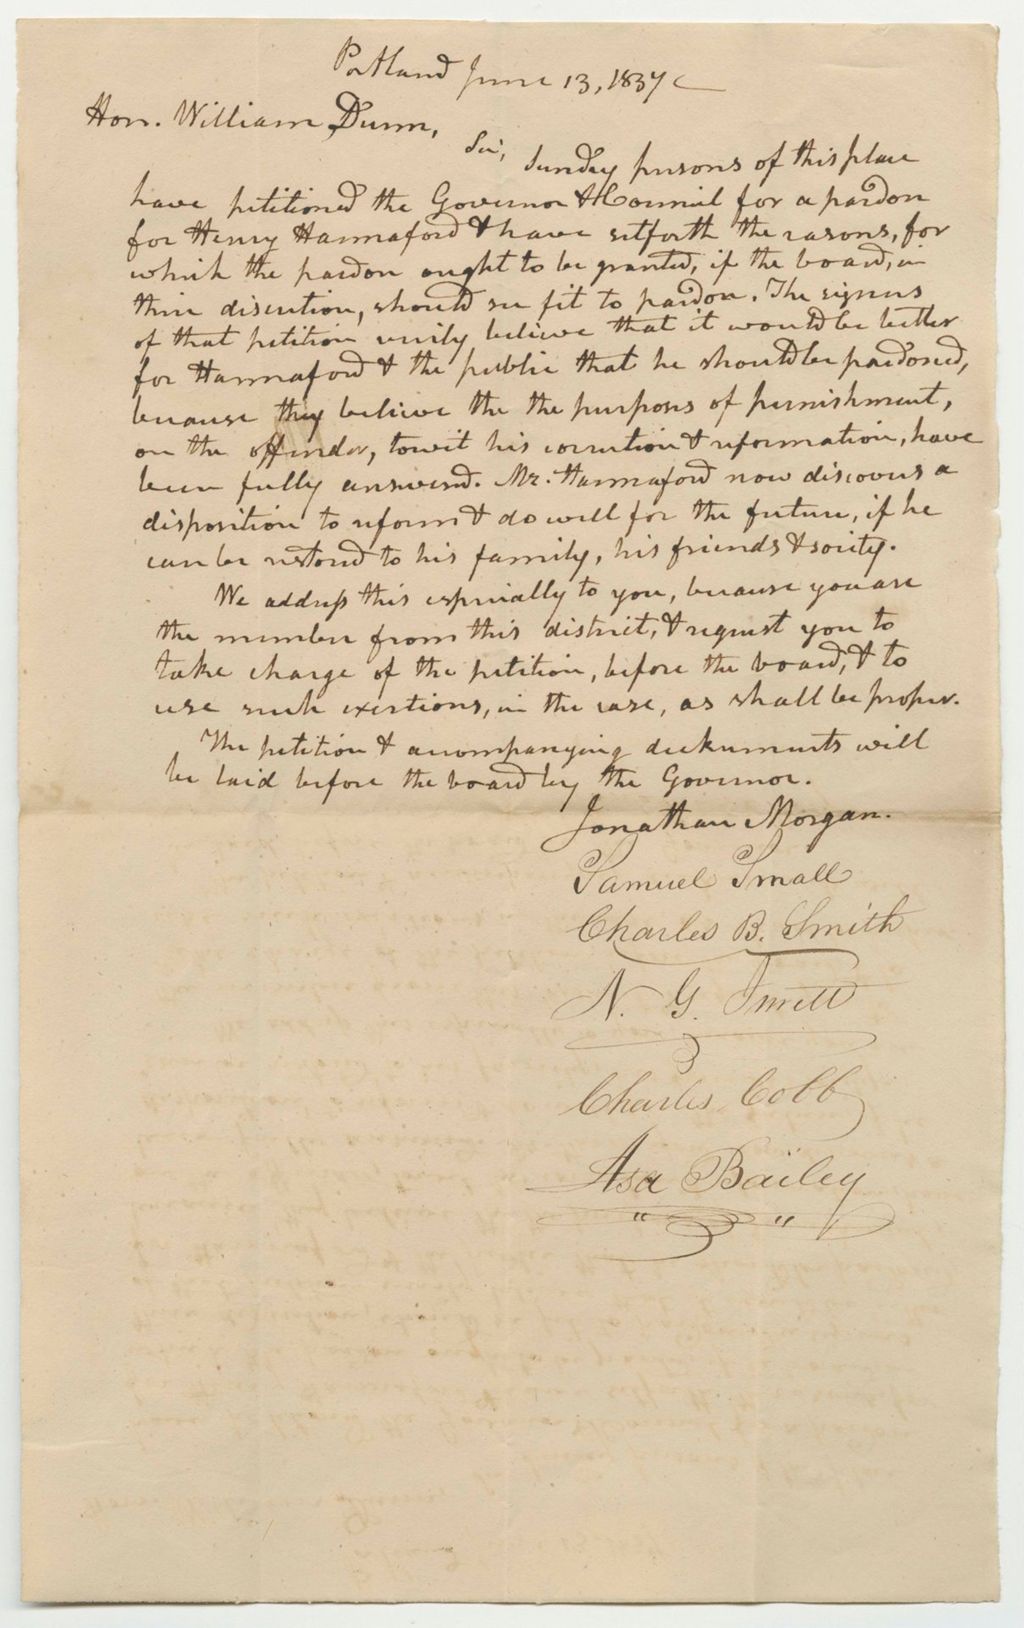 Portland June 13, 1837
Hon. William Dunn,
Sir, Sundry persons of this place
have petitioned the Governor & Council for a pardon
for Henry Hannaford & have setforth the reasons, for
which the pardon ought to be granted, if the board, in
their discretion, should see fit to pardon. The signers
of that petition verily believe that it would be better
for Hannaford & the public that he should be pardoned,
because they believe the the purposes of punishment,
on the offender, towit his correction & reformation, have
been fully answered. Mr. Hannaford now discovers a
disposition to reform & do well for the future, if he
can be restored to his family, his friends & society.
We address this especially to you, because you are
the member from this district, & request you to
take charge of the petition, before the board, & to
use such exertions, in the case, as shall be proper.
The petition & accompanying deckuments will
be laid before the board by the Governor.
Jonathan Morgan.
Samuel Small
Charles B. Smith
N. G.
Charles Cobb
Asa Bailey